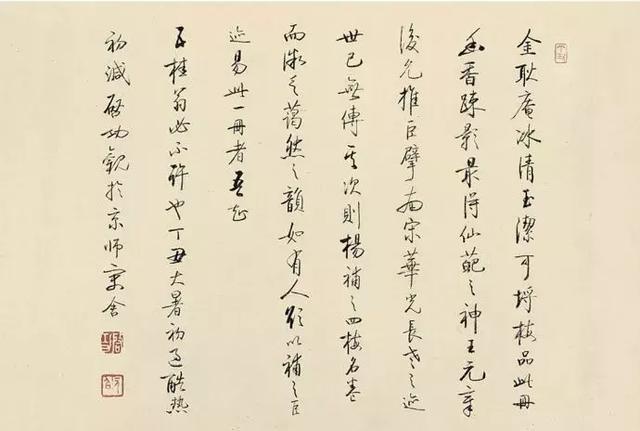 金耿庵冰清玉潔可埒梅品此冊
幽香踈影最得仙葩之神王元章
後允推巨擘南宋華光長老之迹
世已無傳其次則楊補之四梅名卷
而之藹然之韻如有人欲以補之巨
迹易此一冊者吾知
五桂翁必不許也丁丑大暑初過酷熱
初減啓功觀於京師寓舍